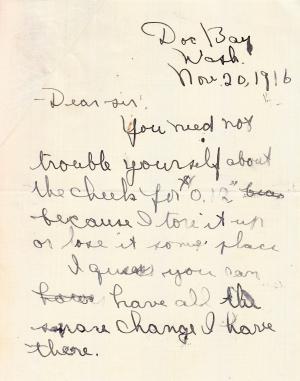 Doe Bay
Wash.
Nov. 20, 1916
-Dear sir!
You need not
trouble yourself about
the check for $0.12
because I tore it up
or lose it some place
I guess you can
have all the
spare change I have
there.